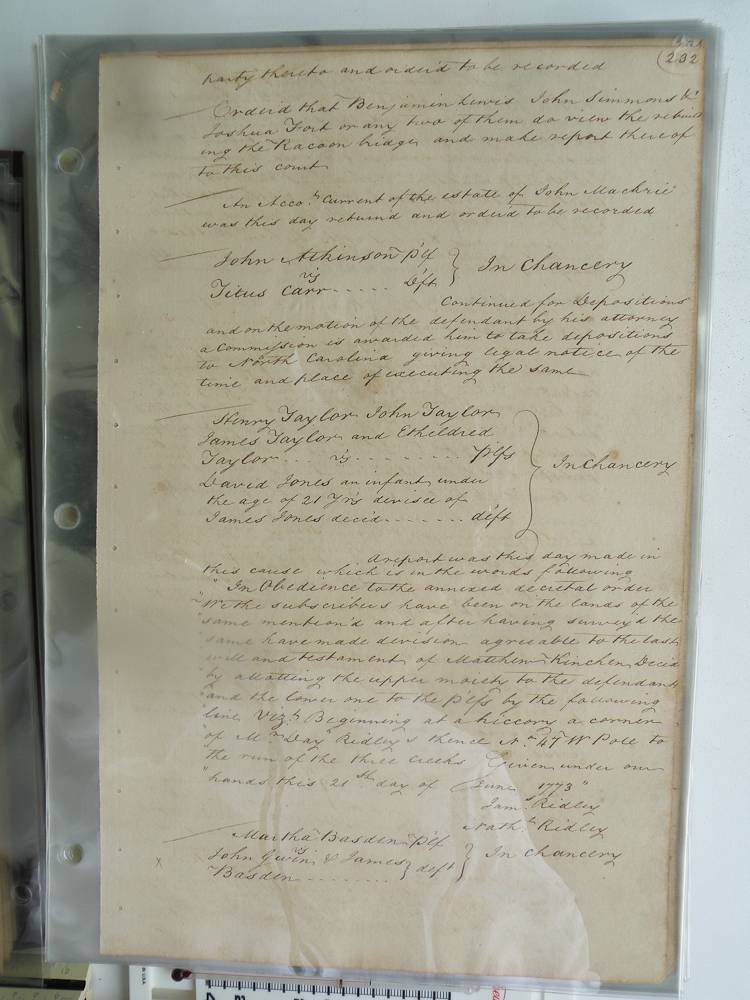 232
party thereto and orderd to be recorded
Orderd that Benjamin Lewis John Simmons &
Joshua Fort or any two of them do view the rebuild
ing the Racoon bridge and make report thereof
to this court
An Acco.t Current of the estate of John Mackrie
was this day returnd and orderd to be recorded
John Atkinson Plf
vs
Titus Carr ..... Deft
In Chancery
Continued for Depositions
and on the motion of the defendant by his attorney
a Commission is awarded him to take depositions
to North Carolina giving legal notice of the
time and place of executing the same
Henry Taylor John Taylor
James Taylor and Etheldred
Taylor ... vs ........ Plfs
David Jones an infant under
the age of 21 Yrs devisee of
James Jones decid ....... deft
In Chancery
A report was this day made in
this cause which is in the words following
"In Obedience to the annexed decretal order
"We the subscribers have been on the lands of the
"same mention'd and after having survey'd the
"same have made division agreeable to the last
"will and testament of Matthew Kinchen Decid
"by allotting the upper moiety to the defendant
"and the lower one to the Plfs by the following
"line Vizt. Beginning at a hiccory a corner
"of Mr Day Ridley's thence No. 47 W Pole to
"the run of the three creeks Given under our
"hands this 21st day of June 1773"
Jams Ridley
Nathl. Ridley
Martha Basden Plf
vs
John Gwin & James
Basden ........
deft
In Chancery
x